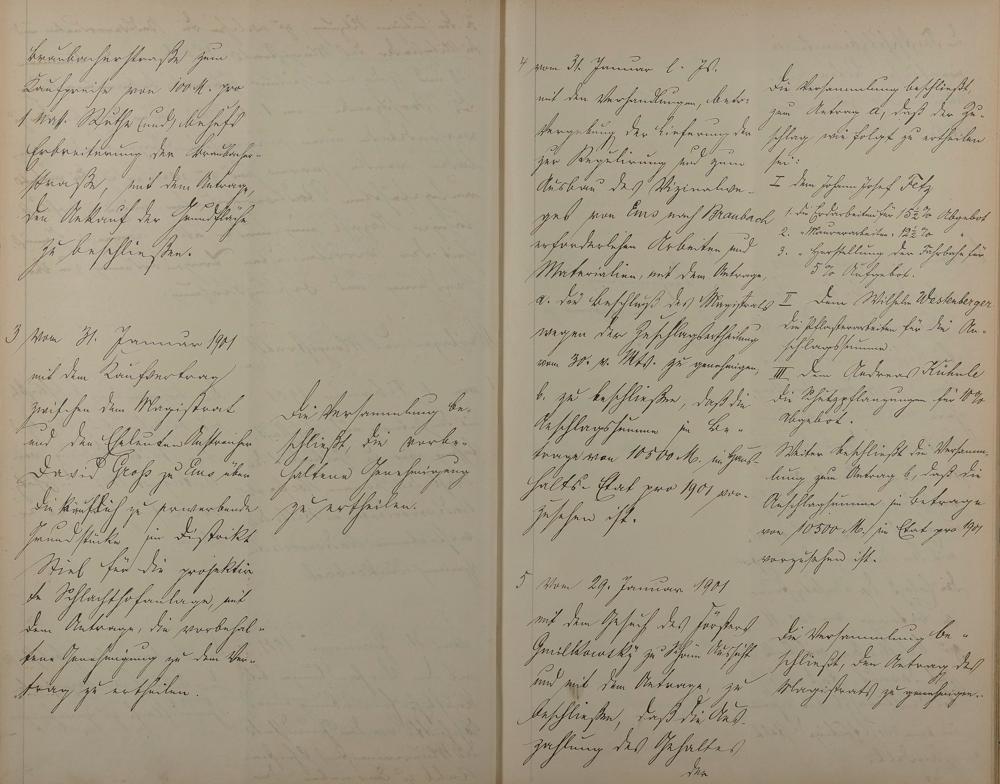 Braubacherstraße zum
Kaufpreise von 100 M. pro
1 Ruthe (und) behufs
Erbreiterung der Braubacher-
straße, mit dem Antrage,
den Ankauf der Grundfläche
zu beschließen.
3 Vom 31. Januar 1901
mit dem Kaufvertrag
zwischen dem Magistrat
und den Eheleuten
David Groß zu Ems über
die käuflich zu erwerbende
Grundstücke im Distrikt
Stiel für die projektir-
te Schlachthofanlage, mit
dem Antrage, die vorbehal-
tene Genehmigung zu dem Ver-
trag zu ertheilen.
Die Versammlung be-
schließt, die vorbe-
haltene Genehmigung
zu ertheilen.
4 vom 31. Januar l. Js.
mit den Verhandlungen, betr.
Vergebung der Lieferung der
zur Regulirung und zum
Ausbau des Vizinalwe-
ges von Ems nach Braubach
erforderlichen Arbeiten und
Materialien, mit dem Antrage,
a. den Beschluß des Magistrats
wegen der Zuschlagsertheilung
vom 30. v. Mts. zu genehmigen,
b. zu beschließen, daß die
Anschlagssumme im Be-
trage von 10500 M. im Haus-
halts-Etat pro 1901 vor-
zusehen ist.
Die Versammlung beschließt,
zum Antrag a, daß der Zu-
schlag wie folgt zu ertheilen
sei:
I dem Johann Josef Fetz
1. die Erdarbeiten für 15½ % Abgebot
2. " Maurerarbeiten " 12½ % "
3. " Herstellung der Fahrbahn für
5 % Aufgebot.
II Dem Wilhelm Westenberger
die Pflasterarbeiten für die An-
schlagssumme.
III dem Andreas Kühnle
die Schutzpflanzungen für 10 %
Abgebot.
Weiter beschließt die Versamm-
lung zum Antrag b, daß die
Anschlagsumme im Betrage
von 10500 M. im Etat pro 1901
vorzusehen ist.
5 Vom 29. Januar 1901
mit dem Gesuch des Försters
zu Schöne Aussicht
und mit dem Antrage, zu
beschließen, daß die Aus-
zahlung des Gehaltes
der
Die Versammlung be-
schließt, den Antrag des
Magistrats zu genehmigen.